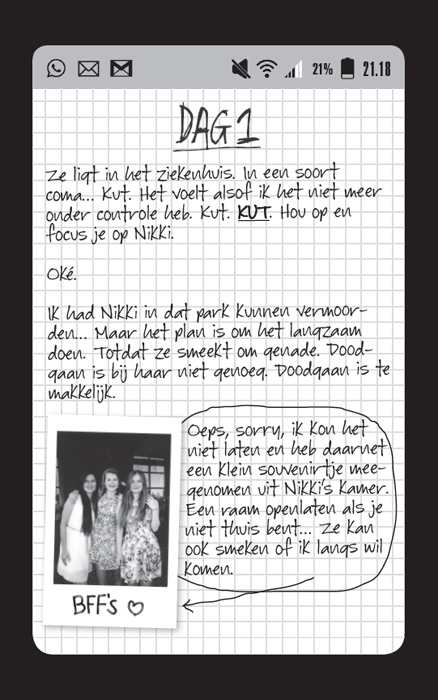 21% 21.18
DAG 1
Ze ligt in het ziekenhuis. In een soort
coma... Kut. Het voelt alsof ik het niet meer
onder controle heb. Kut. KUT. Hou op en
focus je op Nikki.
Oké.
Ik had Nikki in dat park kunnen vermoor-
den... Maar het plan is om het langzaam
doen. Totdat ze smeekt om genade. Dood-
gaan is bij haar niet genoeg. Doodgaan is te
makkelijk.
Oeps, sorry, ik kon het
niet laten en heb daarnet
een klein souvenirtje mee-
genomen uit Nikki's kamer.
Een raam openlaten als je
niet thuis bent... Ze kan
ook smeken of ik langs wil
komen.
BFF's ♡